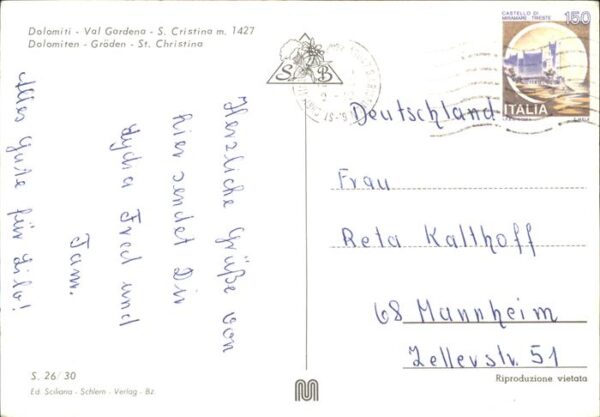 Dolomiti - Val Gardena - S. Cristina m. 1427
Dolomiten - Gröden - St. Christina
Herzliche Grüße von
hier sendet Dir
Lydia Fred und
Fam.
Alles Gute für Lilo!
S. 26/30
Ed. Sciliana - Schlern - Verlag - Bz.
S B
CASTELLO DI
MIRAMARE TRIESTE
150
ITALIA
Deutschland
Frau
Reta Kalthoff
68 Mannheim
Zellerstr. 51
Riproduzione vietata